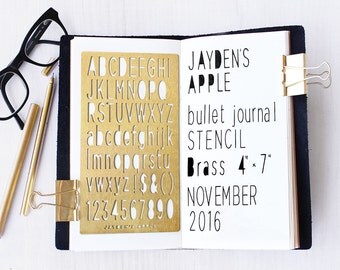 ABCDEFGHI
JKLMNOPQ
RSTUVWXYZ
abcdefghijkl
mnopqrstuv
1234567890
JAYDEN'S
APPLE
bullet journal
STENCIL
Brass 4" × 7"
NOVEMBER
2016